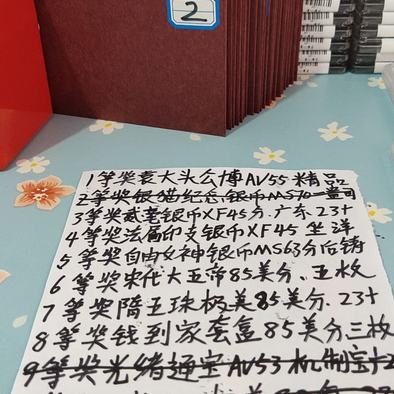 2
1等奖袁大头公博AV55精品
2等奖银猫纪念银币MS70一盎司
3等奖戴花银币XF45分.广东.23个
4等奖法属印支银币XF45 坐洋
5等奖自由女神银币MS63分后铸
6等奖宋代大五帝85美分、五枚
7等奖隋五珠极美85分.23个
8等奖钱到家套盒85美分三枚
9等奖光绪通宝AV53机制宝